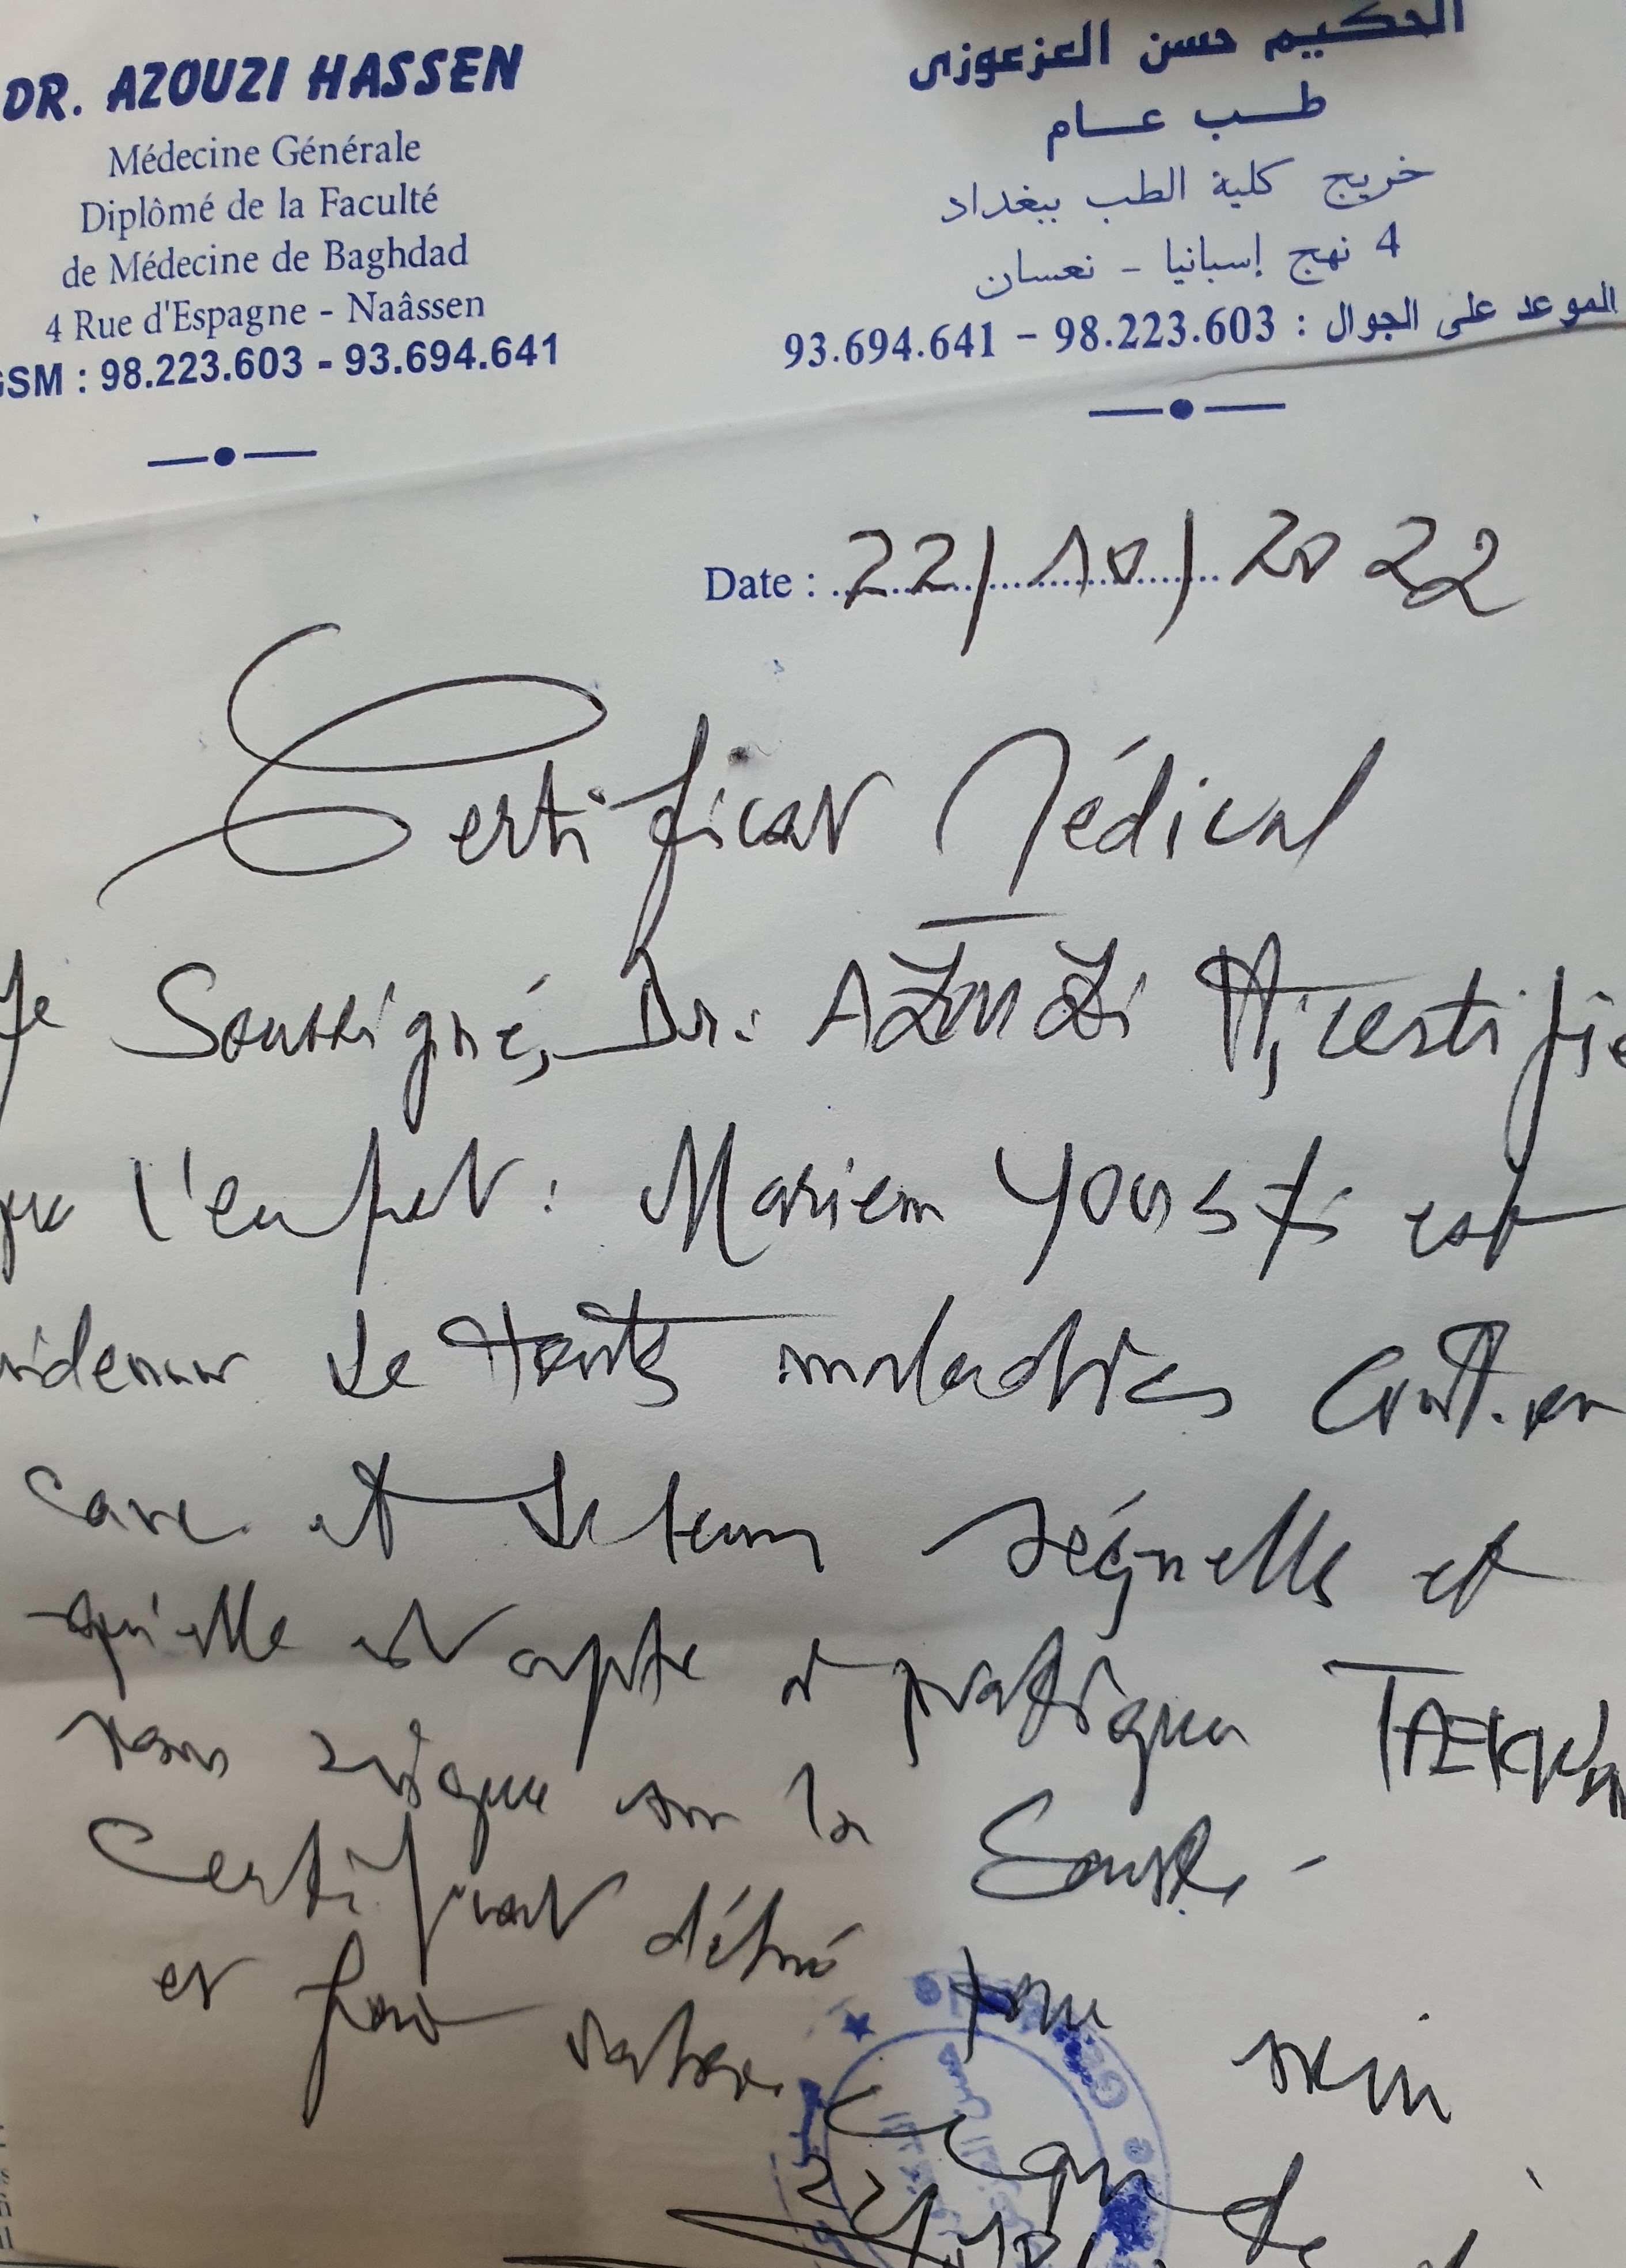 DR. AZOUZI HASSEN
Médecine Générale
Diplômé de la Faculté
de Médecine de Baghdad
4 Rue d'Espagne - Naâssen
GSM : 98.223.603 - 93.694.641
الحكيم حسن العزعوزي
طب عام
خريج كلية الطب ببغداد
4 نهج إسبانيا - نعسان
الموعد على الجوال : 98.223.603 - 93.694.641
Date : 22/10/2022
Certificat Médical
Je Soussigné, Dr. AZOUZi H, certifie
que l'enfant : Mariem Yousfi est
de toutes maladies
et et
qu'elle est apte à pratiquer
sans risque sur la Santé -
Certificat délivré pour
et faire valoir ce que de